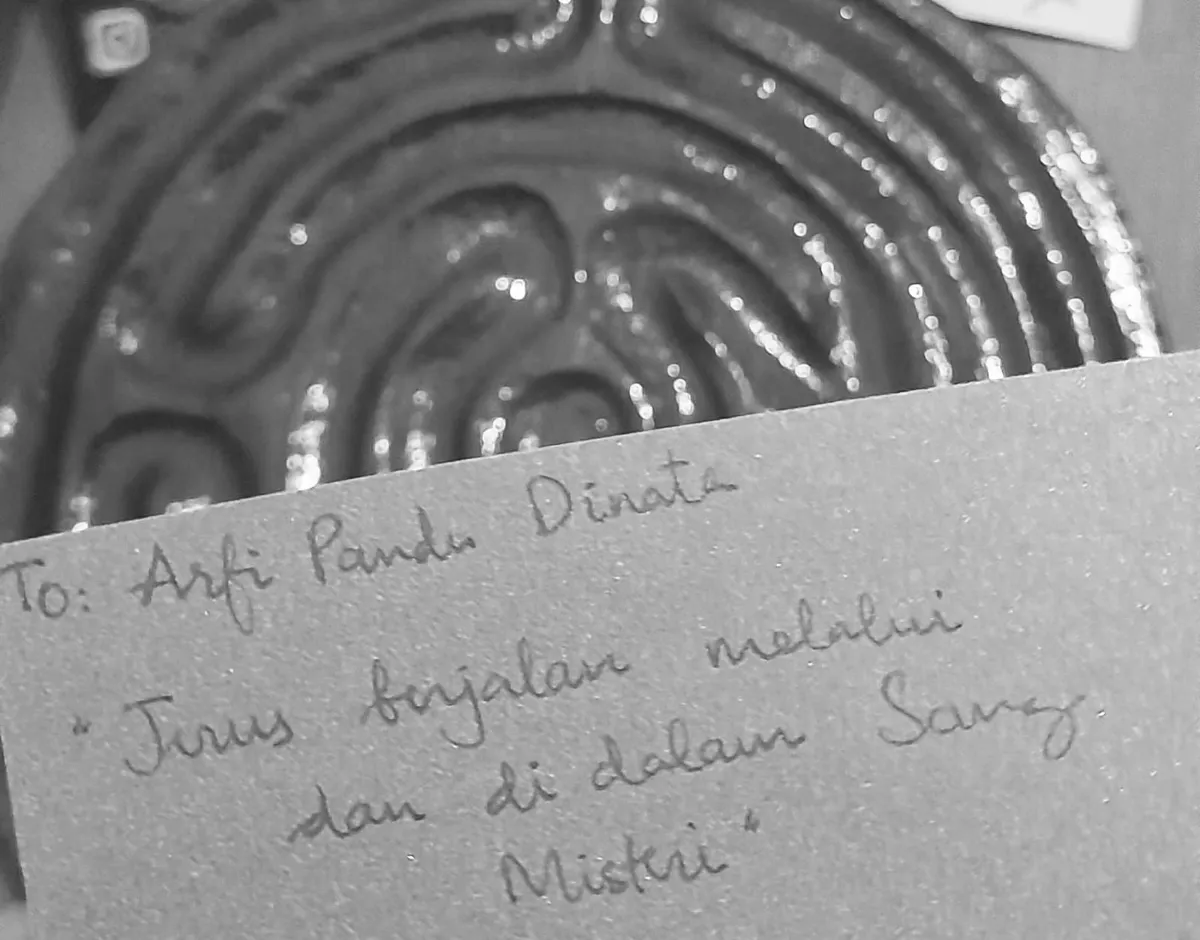 To: Arfi Pandu Dinata
"Terus berjalan melalui
dan di dalam Sang
Misteri"